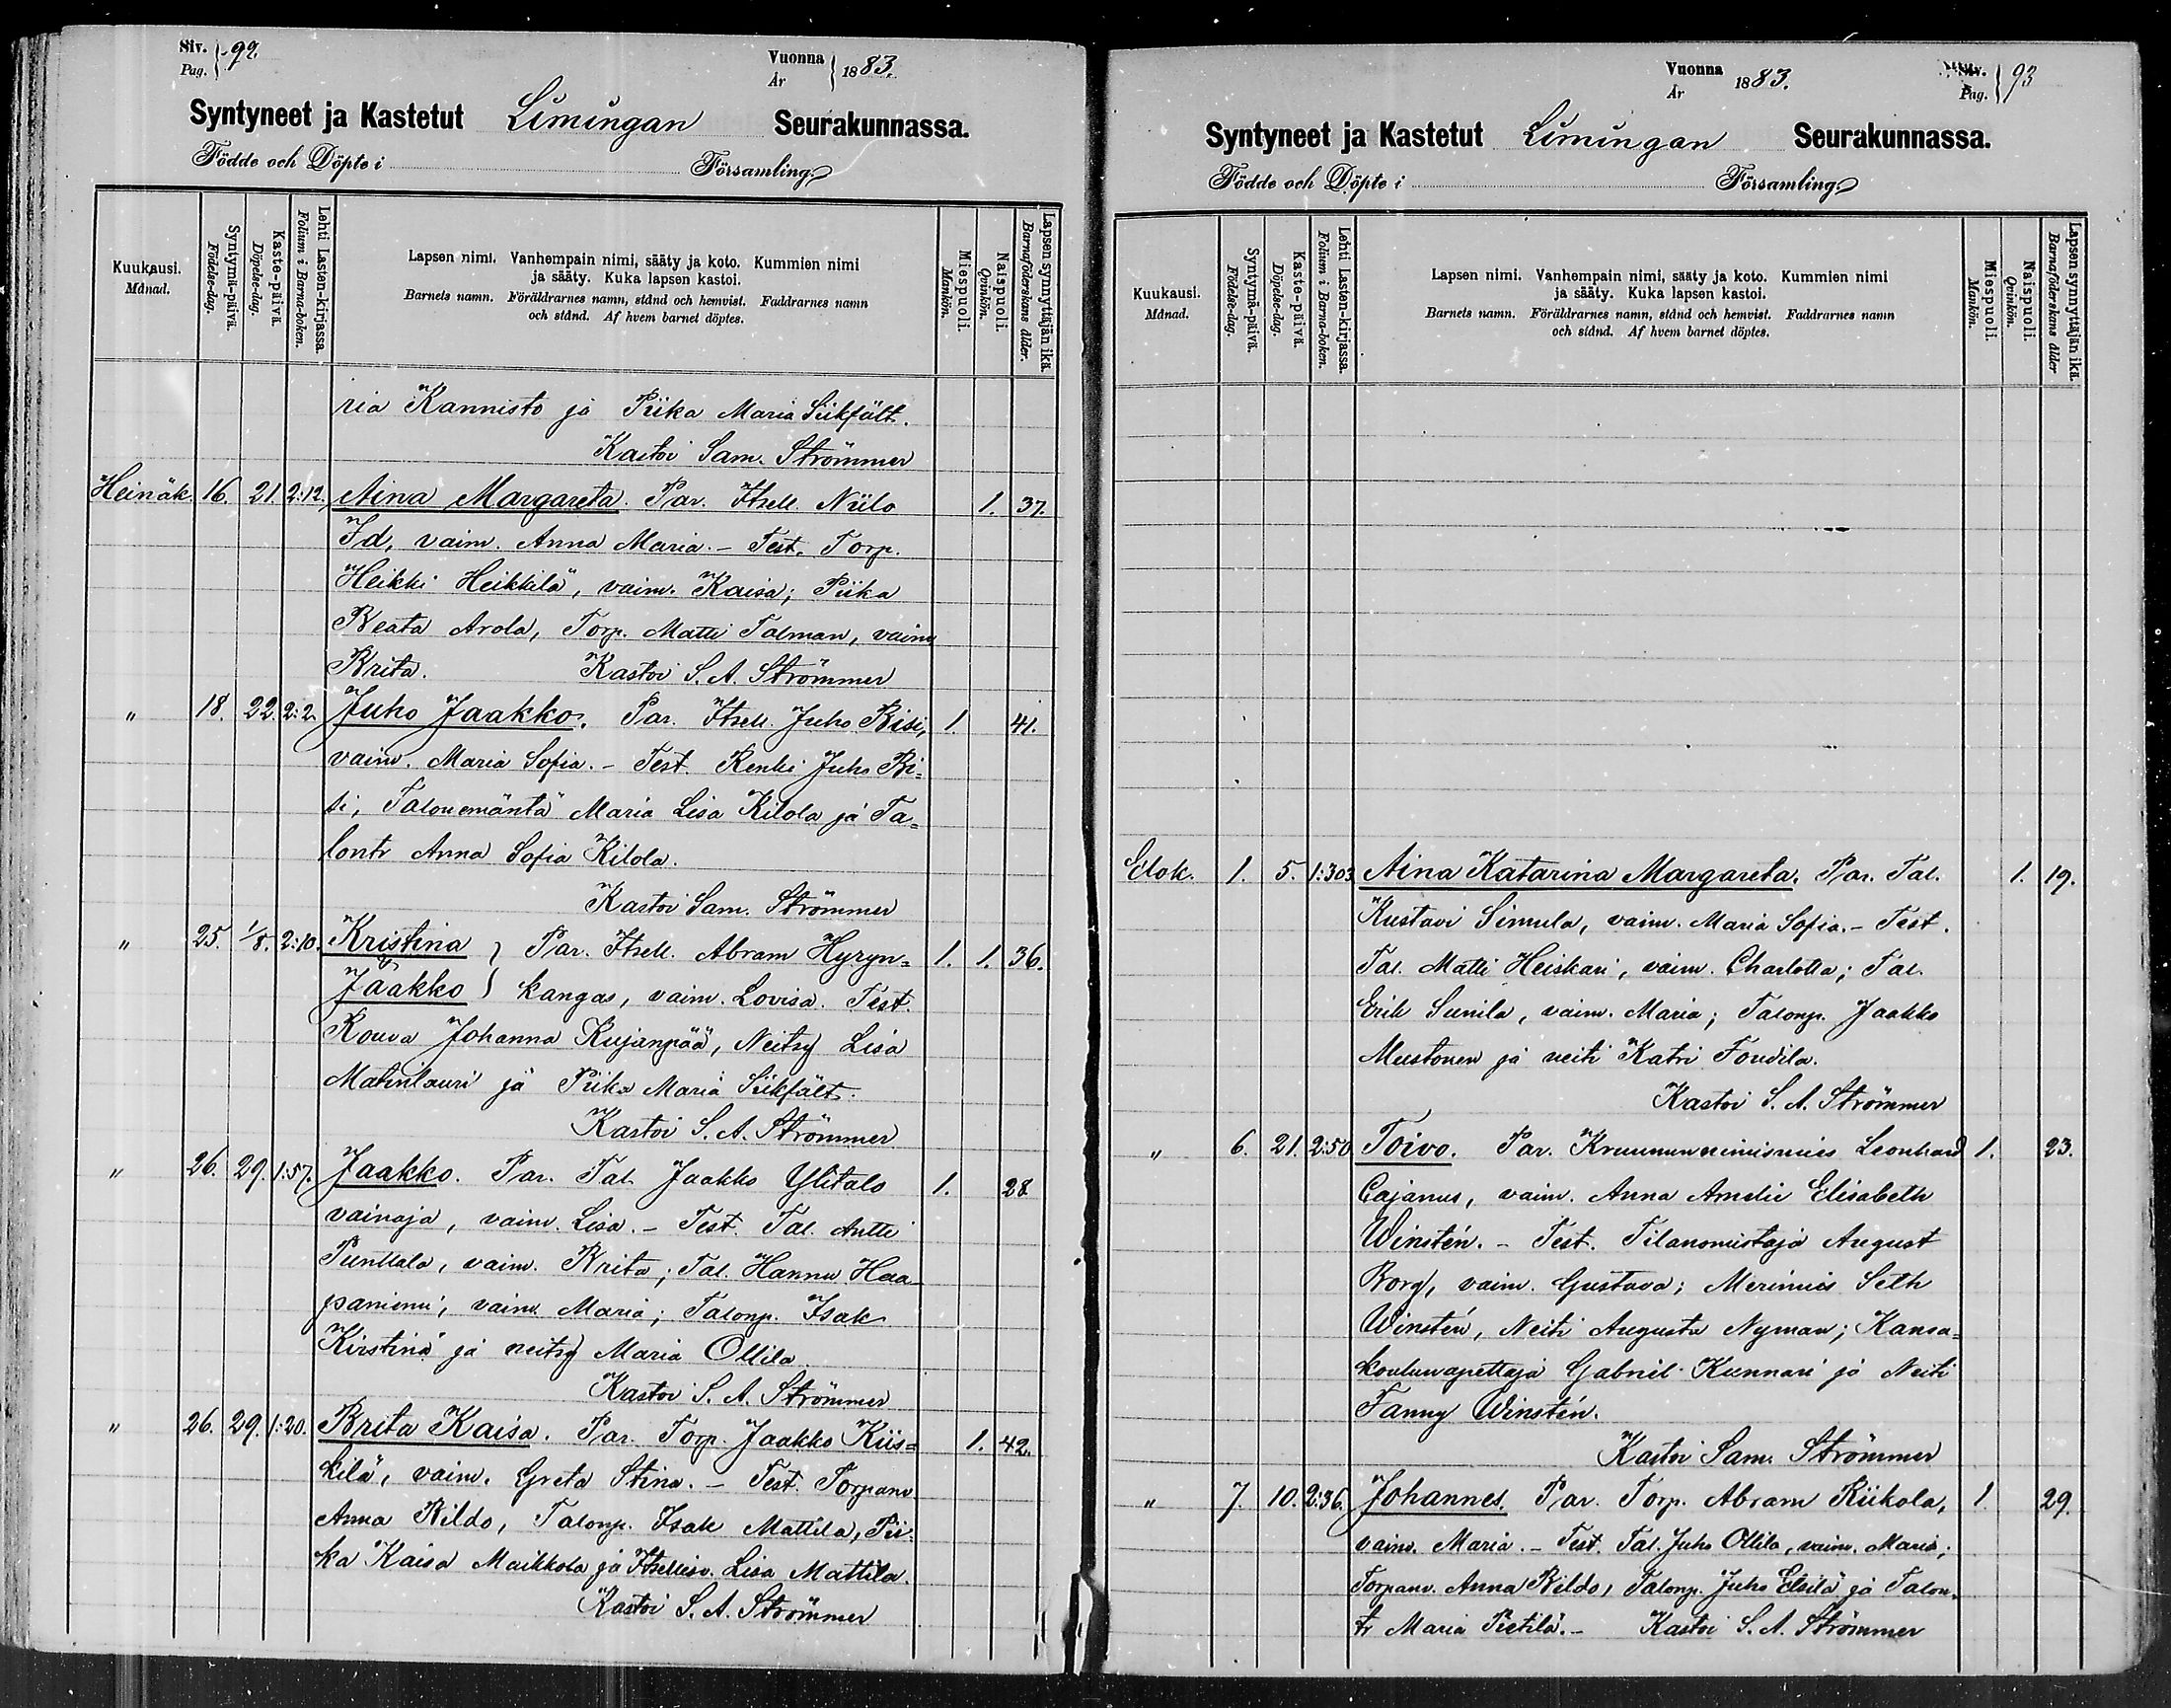 Siv. Pag. } 92.
Vuonna År } 1883.
Syntyneet ja Kastetut Limingan Seurakunnassa.
Födde och Döpte i Församling
Kuukausi. Månad.
Syntymä-päivä. Födelse-dag.
Kaste-päivä. Döpelse-dag.
Lehti Lasten-kirjassa. Folium i Barna-boken.
Lapsen nimi. Vanhempain nimi, sääty ja koto. Kummien nimi
ja sääty. Kuka lapsen kastoi.
Barnets namn. Föräldrarnes namn, stånd och hemvist. Faddrarnes namn
och stånd. Af hvem barnet döptes.
Miespuoli. Mankön.
Naispuoli. Qvinkön.
Lapsen synnyttäjän ikä. Barnaföderskans ålder.
ria Kannisto ja Piika Maria Siikfält.
Kastoi Sam. Strömmer
Heinäk. 16. 21. 2:12. Aina Margareta. Par. Itsell. Niilo 1. 37.
Id, vaim. Anna Maria. - Test. Torp.
Heikki Heikkilä, vaim. Kaisa; Piika
Beata Arola, Torp. Matti Talman, vaim
Brita. Kastoi S. A. Strömmer
" 18. 22. 2:2. Juho Jaakko. Par. Itsell. Juho Bisi, 1. 41.
vaim. Maria Sofia. - Test. Renki Juho Bi=
si, Talonemäntä Maria Lisa Kilola ja Ta=
lontr Anna Sofia Kilola.
Kastoi Sam. Strömmer
" 25. 1/8. 2:10. Kristina } Par. Itsell. Abram Hyryn= 1. 1. 36.
Jaakko } kangas, vaim. Lovisa. Test.
Rouva Johanna Kujanpää, Neitsy Lisa
Matinlauri ja Piika Maria Siikfält.
Kastoi S. A. Strömmer
" 26. 29. 1:57. Jaakko. Par. Tal. Jaakko Ylitalo 1. 28
vainaja, vaim. Lisa. - Test. Tal. Antti
Punttala, vaim. Brita; Tal. Hannu Haa-
paniemi, vaim. Maria; Talonp. Isak
Kirstinä ja neitsy Maria Ollila.
Kastoi S. A. Strömmer
" 26. 29. 1:20. Brita Kaisa. Par. Torp. Jaakko Kiis= 1. 42.
kilä, vaim. Greta Stina. - Test. Torpanv.
Anna Rildo, Talonp. Isak Mattila, Pii-
ka Kaisa Maikkola ja Itsellisv. Lisa Mattila.
Kastoi S. A. Strömmer
Vuonna År 1883.
Siv. Pag. } 93
Syntyneet ja Kastetut Limingan Seurakunnassa.
Födde och Döpte i Församling
Kuukausi. Månad.
Syntymä-päivä. Födelse-dag.
Kaste-päivä. Döpelse-dag.
Lehti Lasten-kirjassa. Folium i Barna-boken.
Lapsen nimi. Vanhempain nimi, sääty ja koto. Kummien nimi
ja sääty. Kuka lapsen kastoi.
Barnets namn. Föräldrarnes namn, stånd och hemvist. Faddrarnes namn
och stånd. Af hvem barnet döptes.
Miespuoli. Mankön.
Naispuoli. Qvinkön.
Lapsen synnyttäjän ikä. Barnaföderskans ålder
Elok. 1. 5. 1:303 Aina Katarina Margareta. Par. Tal. 1. 19.
Kustavi Simula, vaim. Maria Sofia. - Test.
Tal. Matti Heiskari, vaim. Charlotta; Tal.
Erik Sunila, vaim. Maria; Talonp. Jaakko
Mustonen ja neiti Katri Foudila.
Kastoi S. A. Strömmer
" 6. 21. 2:50 Toivo. Par. Kruununnimismies Leonhard 1. 23.
Cajanus, vaim. Anna Amelie Elisabeth
Winstén. - Test. Tilanomistaja August
Borg, vaim. Gustava; Merimies Seth
Winstén, Neiti Augusta Nyman; Kansa=
koulunopettaja Gabriel Kunnari ja Neiti
Fanny Winstén.
Kastoi Sam. Strömmer
" 7. 10. 2:36. Johannes. Par. Torp. Abram Riikola, 1. 29.
vaim. Maria. - Test. Tal. Juho Ollila, vaim. Maria;
Torpanv. Anna Rildo, Talonp. Juho Elsilä ja Talon-
tr Maria Pietilä. - Kastoi S. A. Strömmer